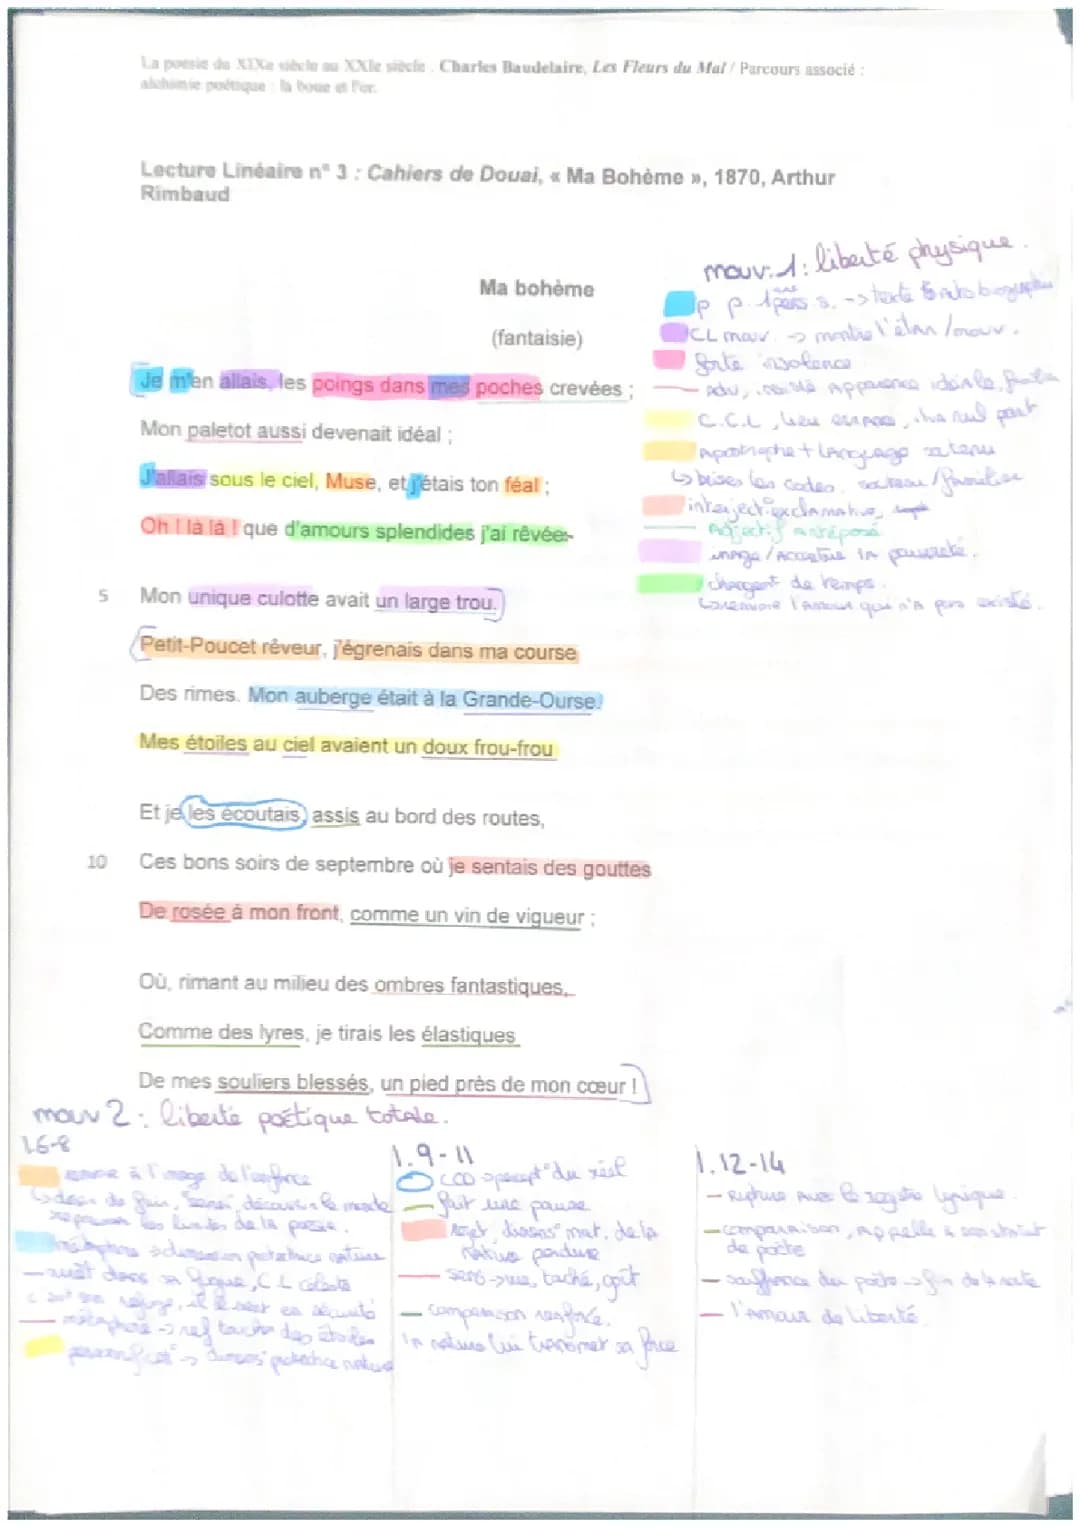 La poésie du XIXe siècle au XXIe siècle. Charles Baudelaire, Les Fleurs du Mal / Parcours associé :
alchimie poétique : la boue et l'or.
Lecture Linéaire n° 3 : Cahiers de Douai, « Ma Bohème », 1870, Arthur
Rimbaud
Ma bohème
(fantaisie)
Je m'en allais, les poings dans mes poches crevées ;
Mon paletot aussi devenait idéal ;
J'allais sous le ciel, Muse, et j'étais ton féal ;
Oh ! là là ! que d'amours splendides j'ai rêvées
5 Mon unique culotte avait un large trou.
Petit-Poucet rêveur, j'égrenais dans ma course
Des rimes. Mon auberge était à la Grande-Ourse.
Mes étoiles au ciel avaient un doux frou-frou
Et je les écoutais, assis au bord des routes,
10 Ces bons soirs de septembre où je sentais des gouttes
De rosée à mon front, comme un vin de vigueur ;
Où, rimant au milieu des ombres fantastiques,
Comme des lyres, je tirais les élastiques
De mes souliers blessés, un pied près de mon cœur !
mouv. 1 : liberté physique.
p p. 1ère pers s. -> texte autobiographie
CL mouv. -> montre l'élan / mouv.
forte insolence
adv, apparence idéale,
C.C.L, lieu, nul part
Apostrophe + langage soutenu
brises les codes, soutenu / familier
interject° exclamative,
Adjectif antéposé
image / accentue la pauvreté.
changent de temps.
renvoie l'amour qui n'a pas existé.
mouv 2 : liberté poétique totale.
l.6-8
à l'image de l'enfance
découvrir le monde
les limites de la poésie.
métaphore dimension protectrice nature
C L céleste
son refuge, il se sent en sécurité
métaphore -> ref des étoiles
personnificat° -> dimens° protectrice nature
l. 9 - 11
COD percept° du réel
fait une pause
Rejet, dimens° mat. de la
nature perdure
sens -> vue, touché, goût
comparaison renforcé.
la nature lui transmet sa force
l. 12-14
- Rupture avec le registre lyrique.
- comparaison, rappelle
de poète
- souffrance du poète -> fin de la route
- l'amour de liberté.